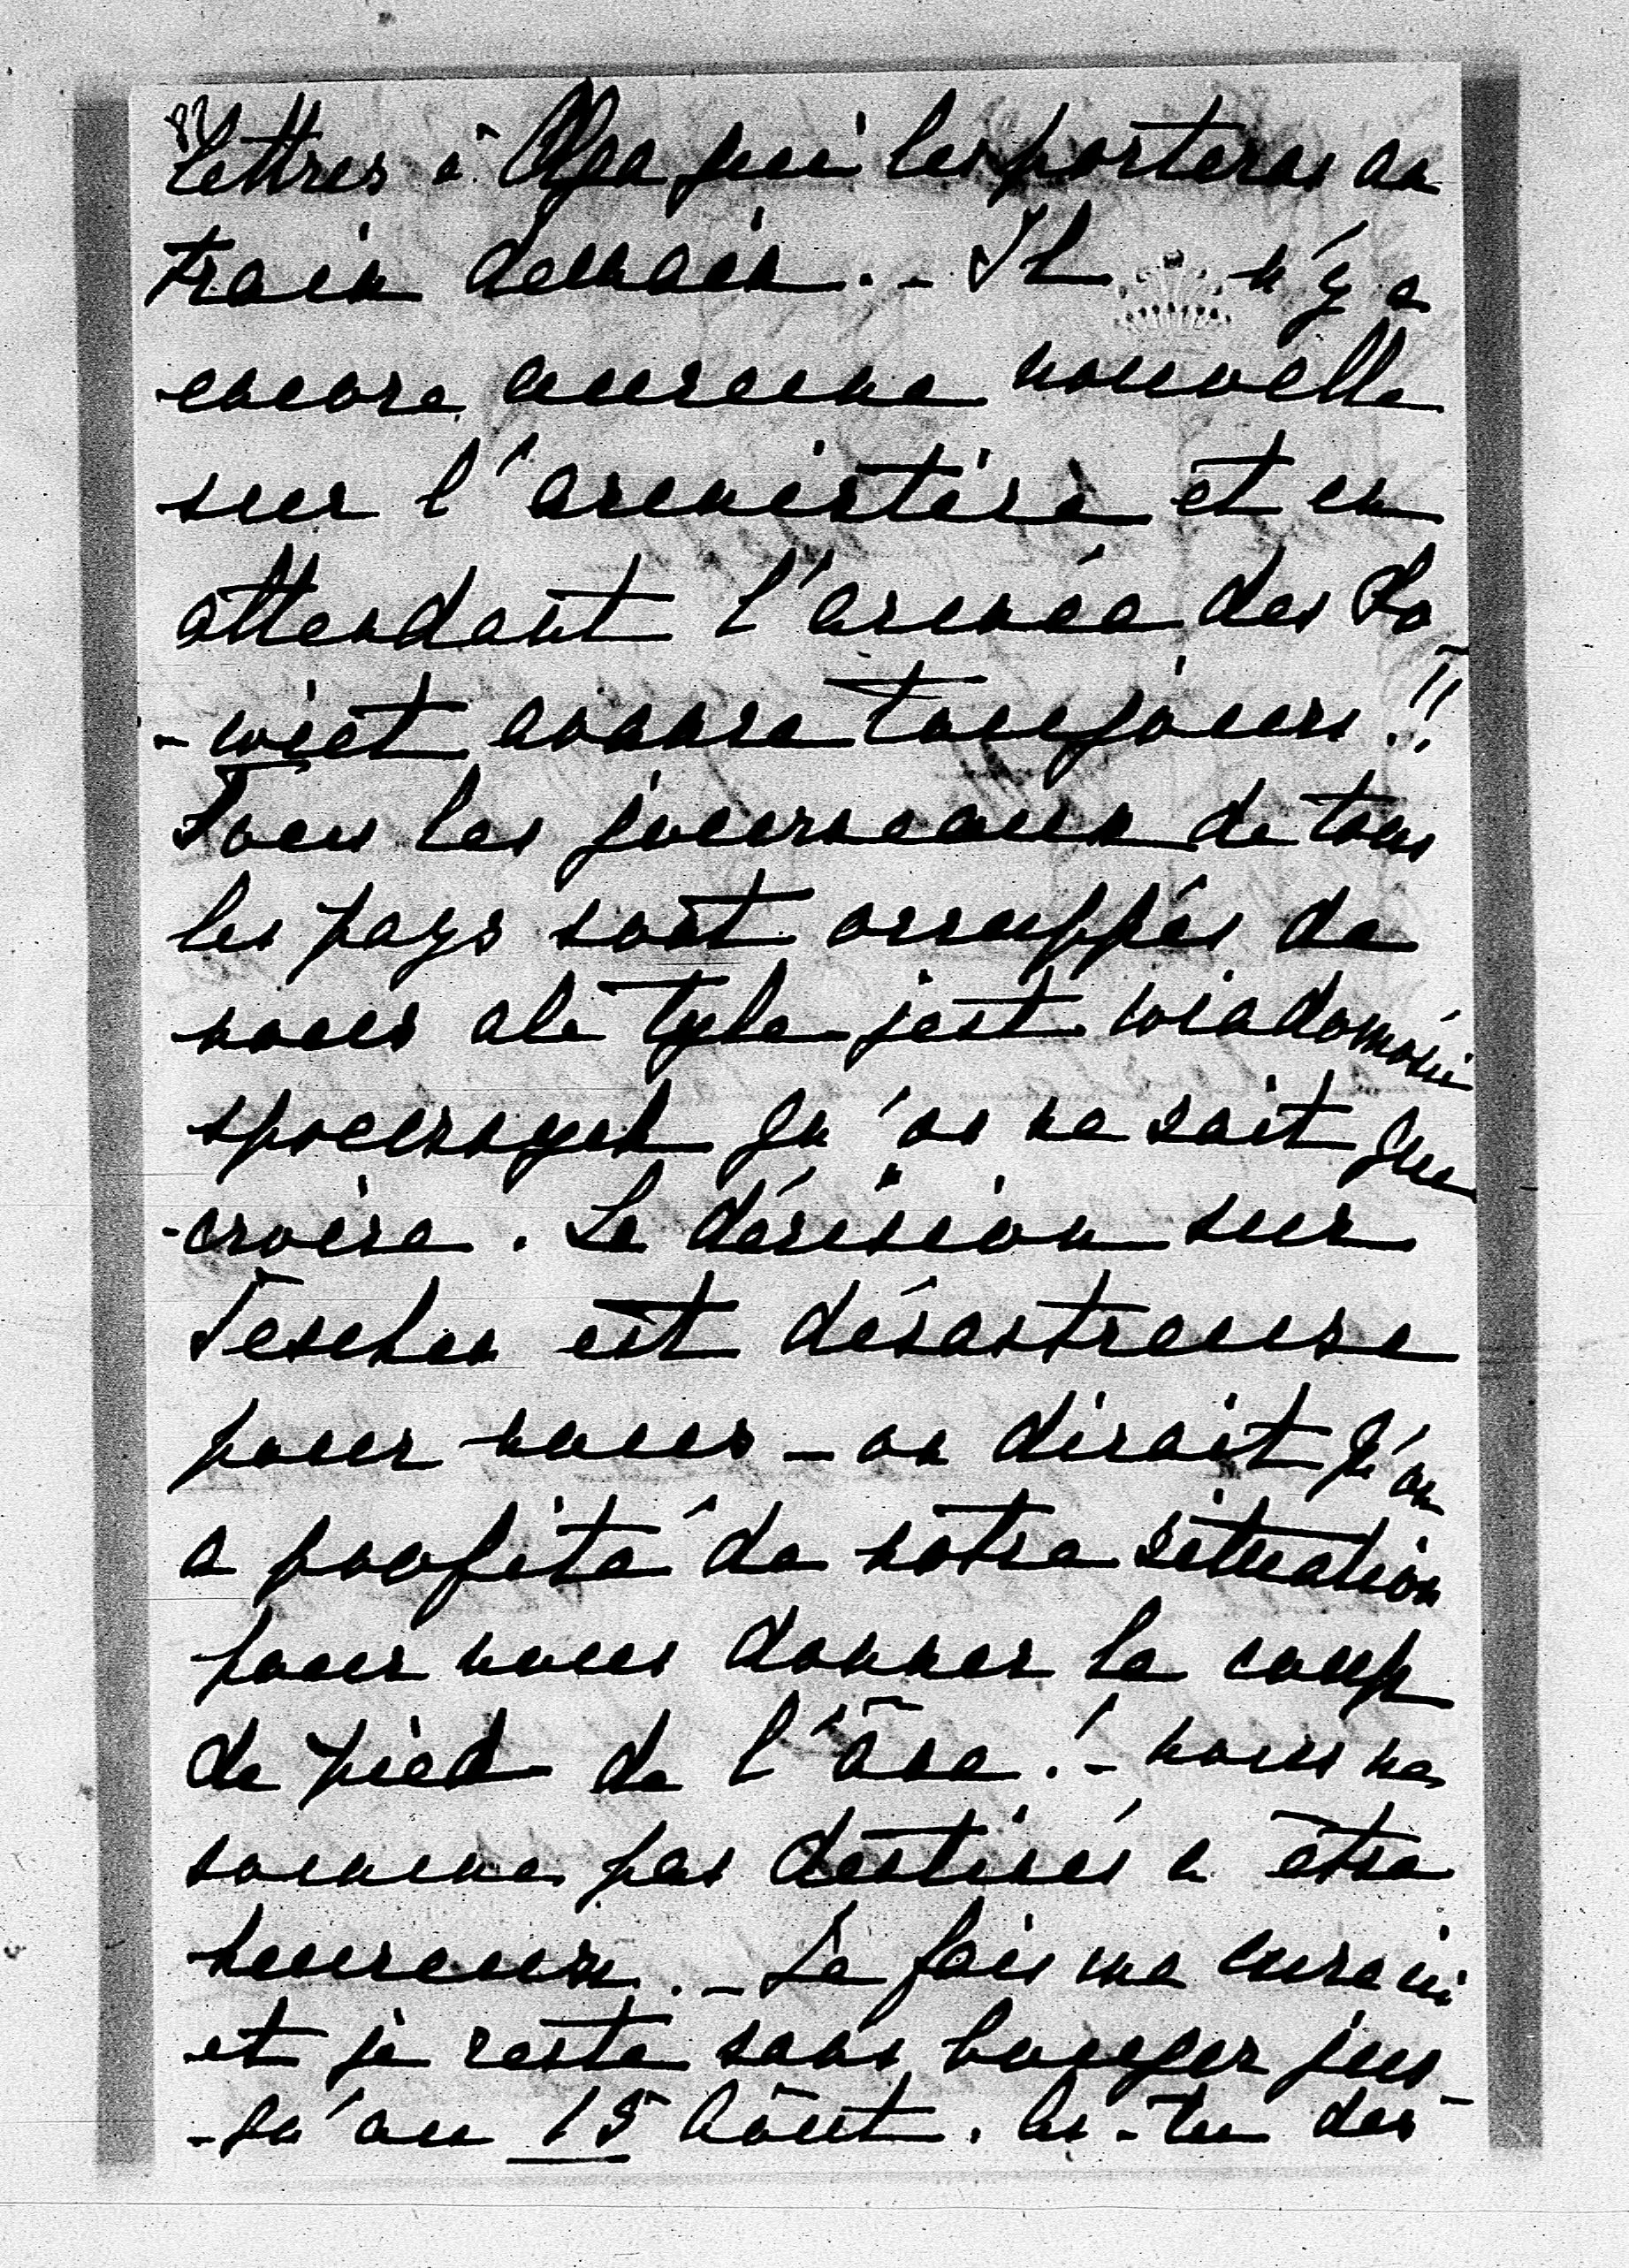 lettres à Olga qui les porteras au
train demain. - Il n'y a
encore aucune nouvelle
sur l'armistice et en
attendant l'armée des So-
-wiet avance toujours!!
Tous les journeaux de tous
les pays sont occuppés de
nous ale tyle jest wiadomości
spocznych qu'on ne sait que
croire. La décision sur
Teschen est désastreuse
pour nous - on dirait qu'on
a profité de notre situation
pour nous donner le coup
de pied de l'âne! - nous ne
somme pas destinés a être
heureux. - Je fais ma cure ici
et je reste sans bouger jus-
-qu'au 15 Août. As-tu des